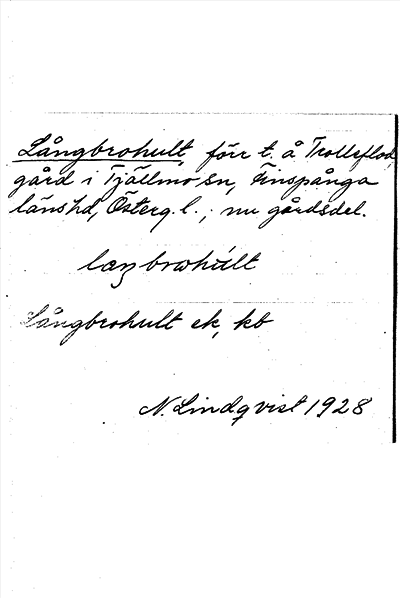 Långbrohult, förr t. å Trolleflod,
gård i Tjällmo sn, Finspånga
läns hd, Österg. l.; nu gårdsdel.
Långbrohult ek, kb
N. Lindqvist 1928